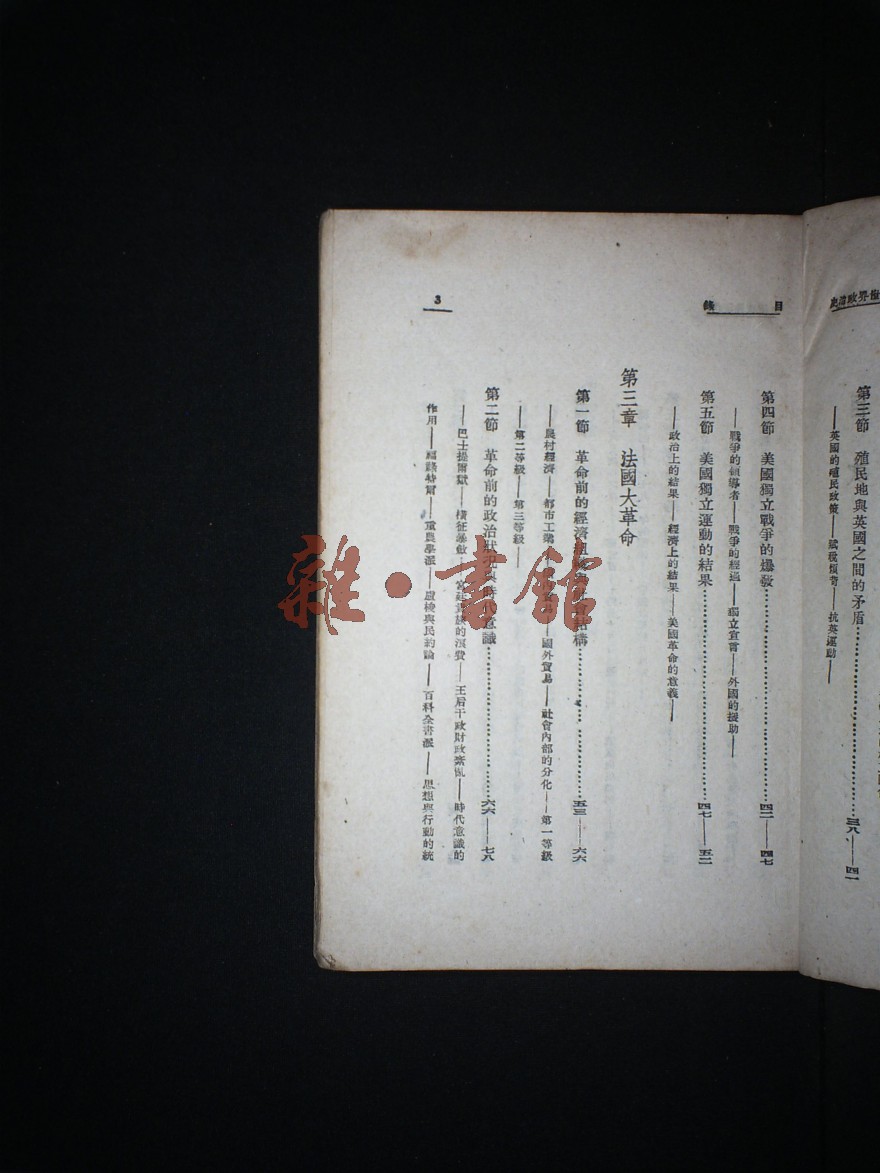 世界政治史
第三節 殖民地與英國之間的矛盾……三八——四一
——英國的殖民政策——賦稅煩苛——抗英運動——
目 錄
第四節 美國獨立戰爭的爆發……四二——四七
——戰爭的領導者——戰爭的經過——獨立宣言——外國的援助——
第五節 美國獨立運動的結果……四七——五二
——政治上的結果——經濟上的結果——美國革命的意義——
第三章 法國大革命
第一節 革命前的經濟組織與社會結構……五三——六六
——農村經濟——都市工業——國內貿易——國外貿易——社會內部的分化——第一等級
——第二等級——第三等級——
第二節 革命前的政治狀況與時代意識……六六——七八
——巴士提爾獄——橫征暴斂——宮廷貴族的浪費——王后干政財政紊亂——時代意識的
作用——福祿特爾——重農學派——盧梭與民約論——百科全書派——思想與行動的統
3
雜·書館